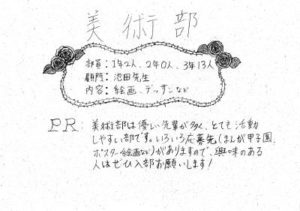 美術部
部員：1年2人、2年0人、3年13人
顧問：池田先生
内容：絵画、デッサンなど
PR：美術部は優しい先輩が多く、とても活動
しやすい部です。いろいろ応募先(まんが甲子園、
ポスター絵画など)がありますので、興味のある
人はぜひ入部お願いします！